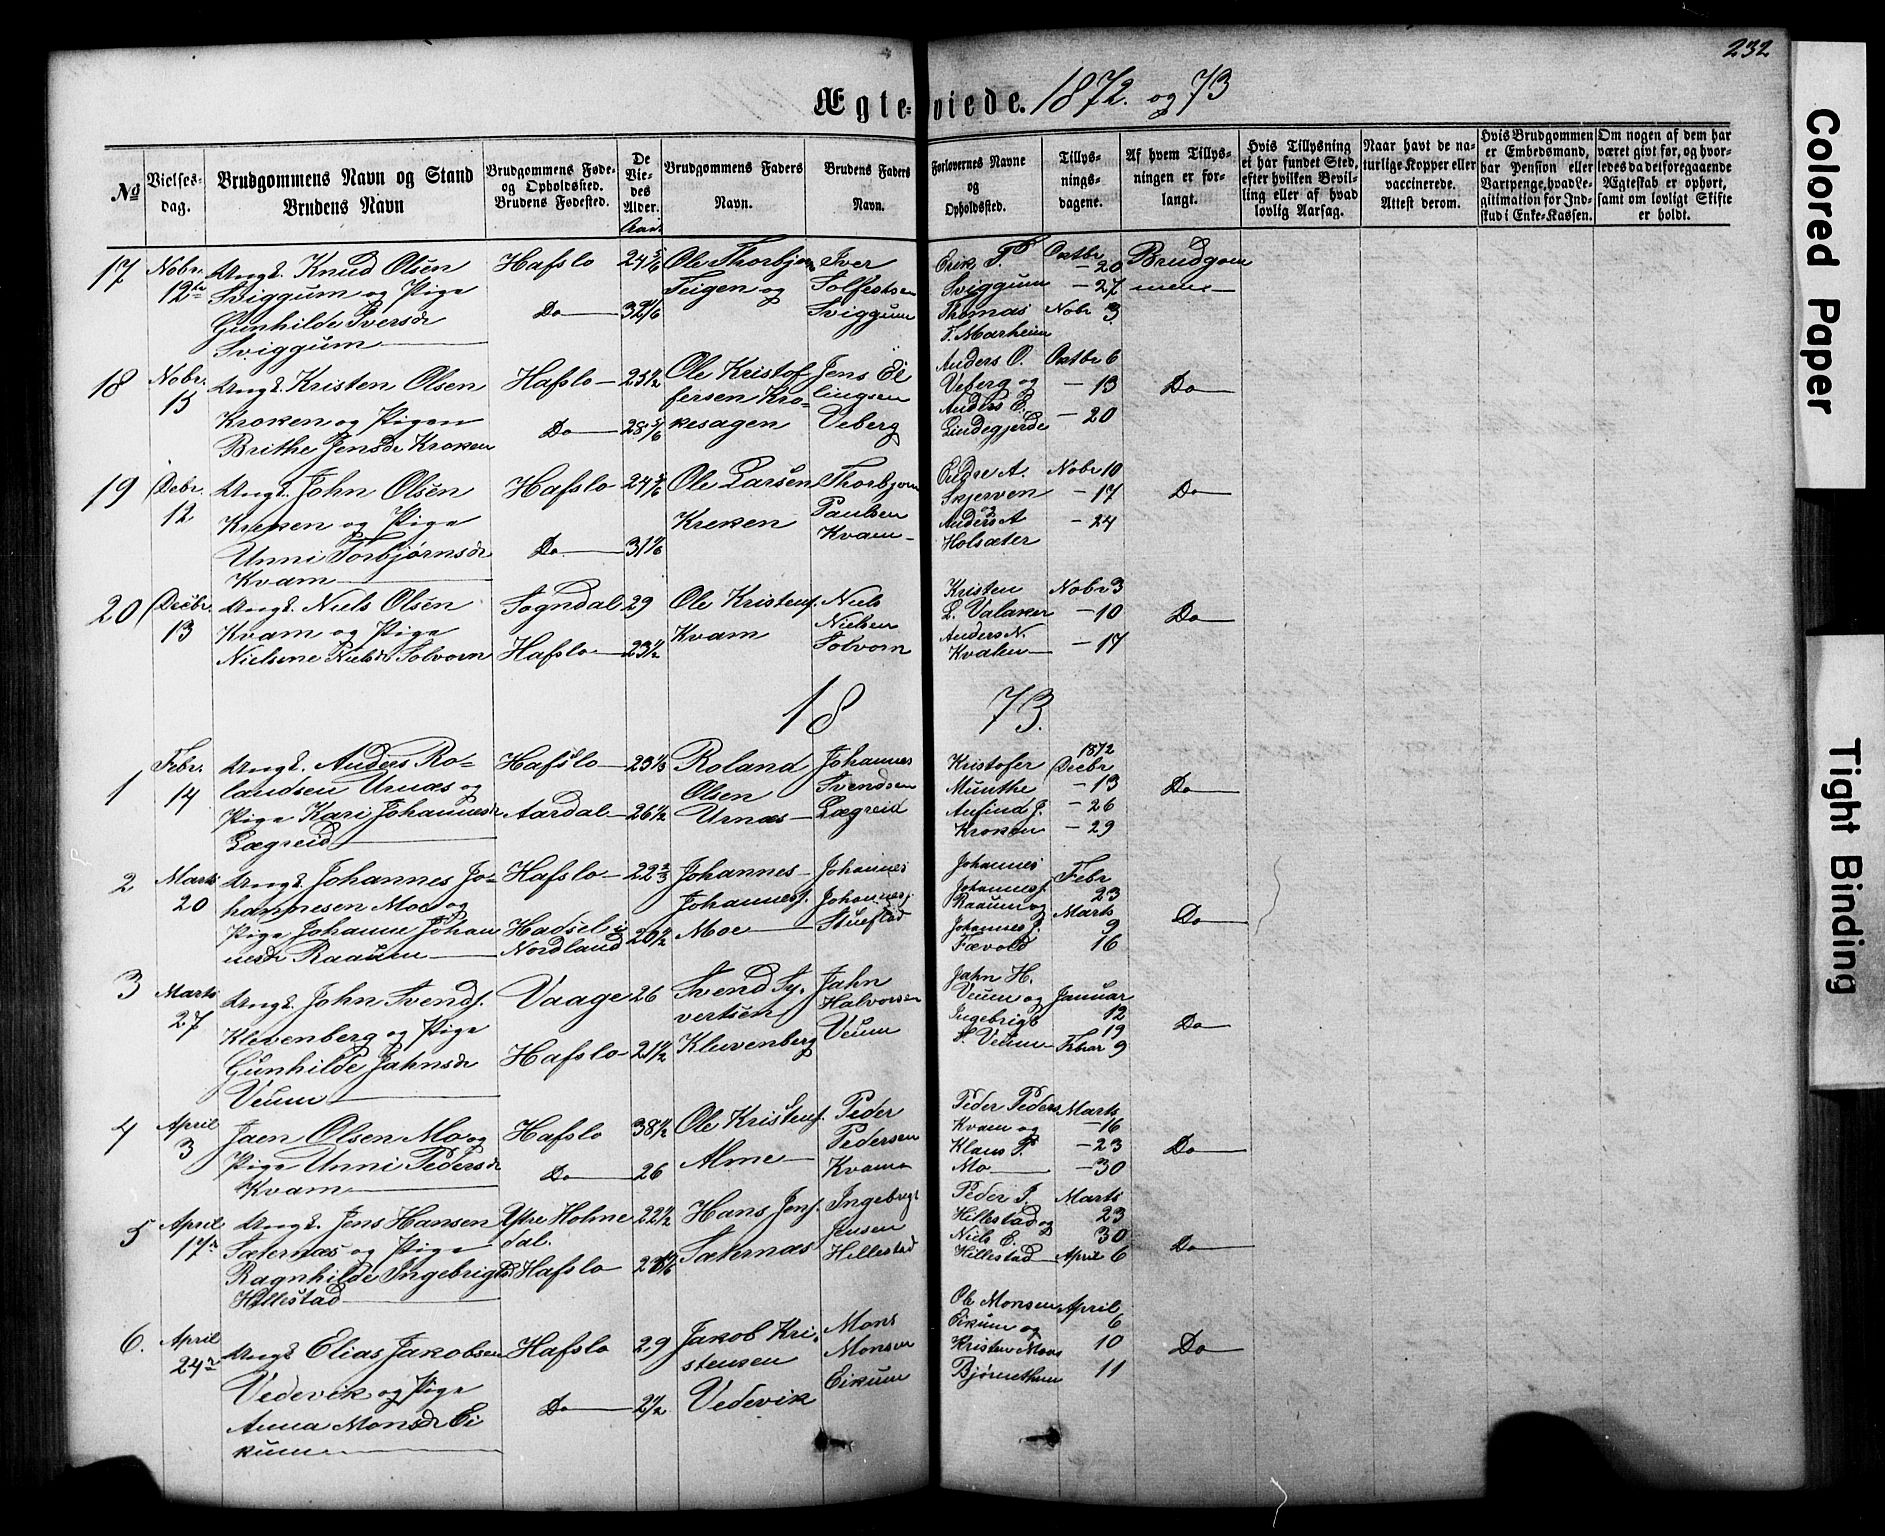 232
Ægteviede. 1872. og 73
No
Vielses-
dag.
Brudgommens Navn og Stand
Brudens Navn
Brudgommens Føde-
og Opholdssted.
Brudens Fødested.
De
Vie-
des
Alder.
Aar
Brudgommens Faders
Navn.
Brudens Faders
Navn.
Forlovernes Navne
og
Opholdssted.
Tillys-
nings-
dagene.
Af hvem Tillys-
ningen er for-
langt.
Hvis Tillysning
ei har fundet Sted,
efter hvilken Bevil-
ling eller af hvad
lovlig Aarsag.
Naar havt de na-
turlige Kopper eller
vaccinerede.
Attest derom.
Hvis Brudgommen
er Embedsmand,
har Pension eller
Vartpenge, hvad Le-
gitimation for Ind-
skud i Enke-Kassen.
Om nogen af dem har
været givt før, og hvor-
ledes da det foregaaende
Ægteskab er ophørt,
samt om lovligt Skifte
er holdt.
17
Nobr.
12te
Ungk. Knud Olsen
Sviggum og Pige
Gunhilde Iversdr
Sviggum
Hafslo
Do
24 5/6
32 1/6
Ole Thorbjørn
Teigen og
Iver
Solfestsen
Sviggum
Erik T.
Sviggum
Thomas
T. Marheim
Octbr
- 20
- 27
Nobr 3
Brudgom
mene
18
Nobr.
15
Ungk. Kristen Olsen
Kroken og Pigen
Brithe Jensdr Kroken
Hafslo
Do
25 1/2
28 5/6
Ole Kristof
fersen Kro-
kesagen
Jens El
lingsen
Veberg
Anders O.
Veberg og
Anders E.
Lindegjerde
Octbr 6
- 13
- 20
Do
19
Debr.
12
Ungk. John Olsen
Kreken og Pige
Unni Torbjørnsdr
Kvam
Hafslo
Do
24 5/6
31 1/6
Ole Larsen
Kreken
Thorbjørn
Paulsen
Kvam
Endre A.
Skjerven
Anders A
Holsæter
Nobr 10
- 17
- 24
Do
20
Decbr.
13
Ungk. Niels Olsen
Kvam og Pige
Nielsine Nielsdr Solvorn
Sogndal
Hafslo
29
23 1/2
Ole Kristens.
Kvam
Niels
Nielsen
Solvorn
Kristen
L. Valaker
Anders N.
Kvalen
Nobr 3
- 10
- 17
Do
1873.
1
Febr.
14
Ungk. Anders Ro-
landsen Urnæs og
Pige Kari Johannesdr
Lægreid
Hafslo
Aardal
23 1/3
26 1/2
Roland
Olsen
Urnæs
Johannes
Svendsen
Lægreid
Kristofer
Munthe
Anfind J.
Kroken
1872
Decbr
- 13
- 26
- 29
Do
2
Marts
20
Ungk. Johannes Jo-
hannesen Moe og
Pige Johanne Johan
nesdr Raaum
Hafslo
Hadsel i
Nordland
22 2/3
20 1/2
Johannes
Johanness.
Moe
Johannes
Johannes
Johannes
Johanness.
Raaum og
Johannes J.
Fævold
Febr
23
Marts
9
16
Do
3
Marts
27
Ungk. John Svends.
Klevenberg og Pige
Gunhilde Jahnsdr
Veum
Vaage
Hafslo
26
21 1/2
Svend Sy-
vertsen
Kluvenberg
Jahn
Halvorsen
Veum
Jahn H.
Veum og
Ingebrigt
S. Veum
Januar
12
19
Febrar 9
Do
4
April
3
Jaen Olsen Mo og
Pige Unni Pedersdr
Kvam
Hafslo
Do
38 1/2
26
Ole Kristens.
Alme
Peder
Pedersen
Kvam
Peder Peders
Kvam og
Klaus P.
Mo
Marts
- 16
- 23
- 30
Do
5
April
17de
Ungk. Jens Hansen
Sæternæs og Pige
Ragnhilde Ingebrigtsd
Hillestad
Ytre Holme
dal.
Hafslo
22 1/2
Hans Jens.
Sæternæs
Ingebrigt
Jensen
Hillestad
Peder J.
Hillestad og
Niels E.
Hillestad
Marts
23
30
April 6
Do
6.
April
24de
Ungk Elias Jakobsen
Vedevik og Pige
Anna Monsdr Ei
kum
Hafslo
Do
29
Jakob Kri-
stensen
Vedevik
Mons
Monsen
Eikum
Ole Monsen
Eikum og
Kristen Mons
April
6
10
11
Do
Colored Paper
Tight Binding